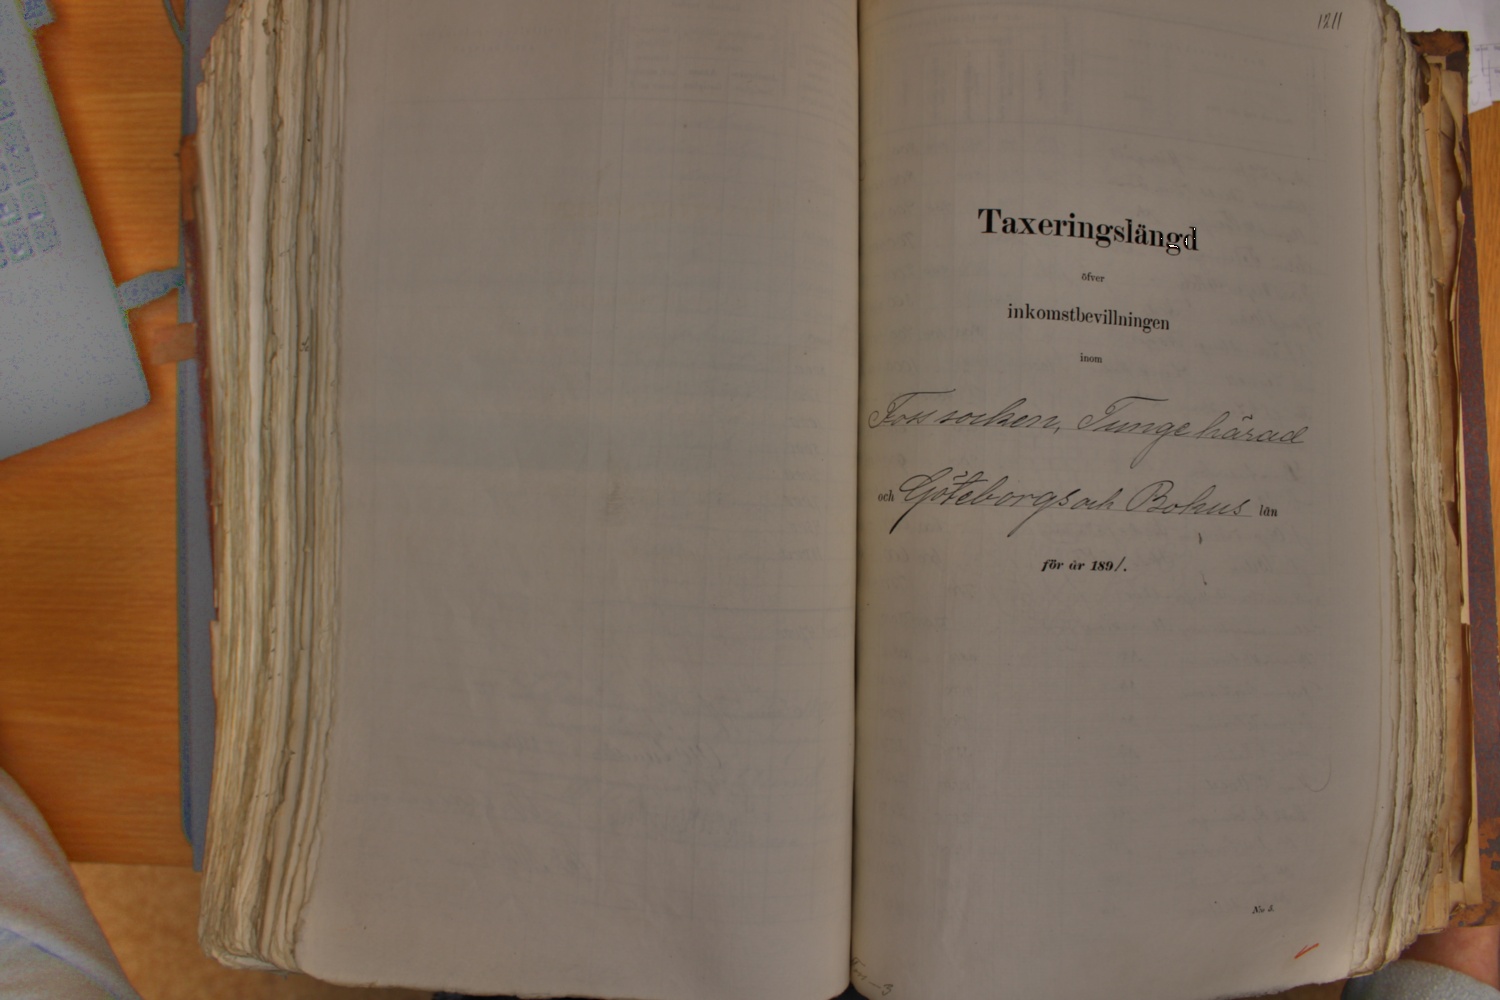 1211
Taxeringslängd
öfver
inkomstbevillningen
inom
Foss socken, Tunge härad
och Göteborgs och Bohus län
för år 1891.
No 5.